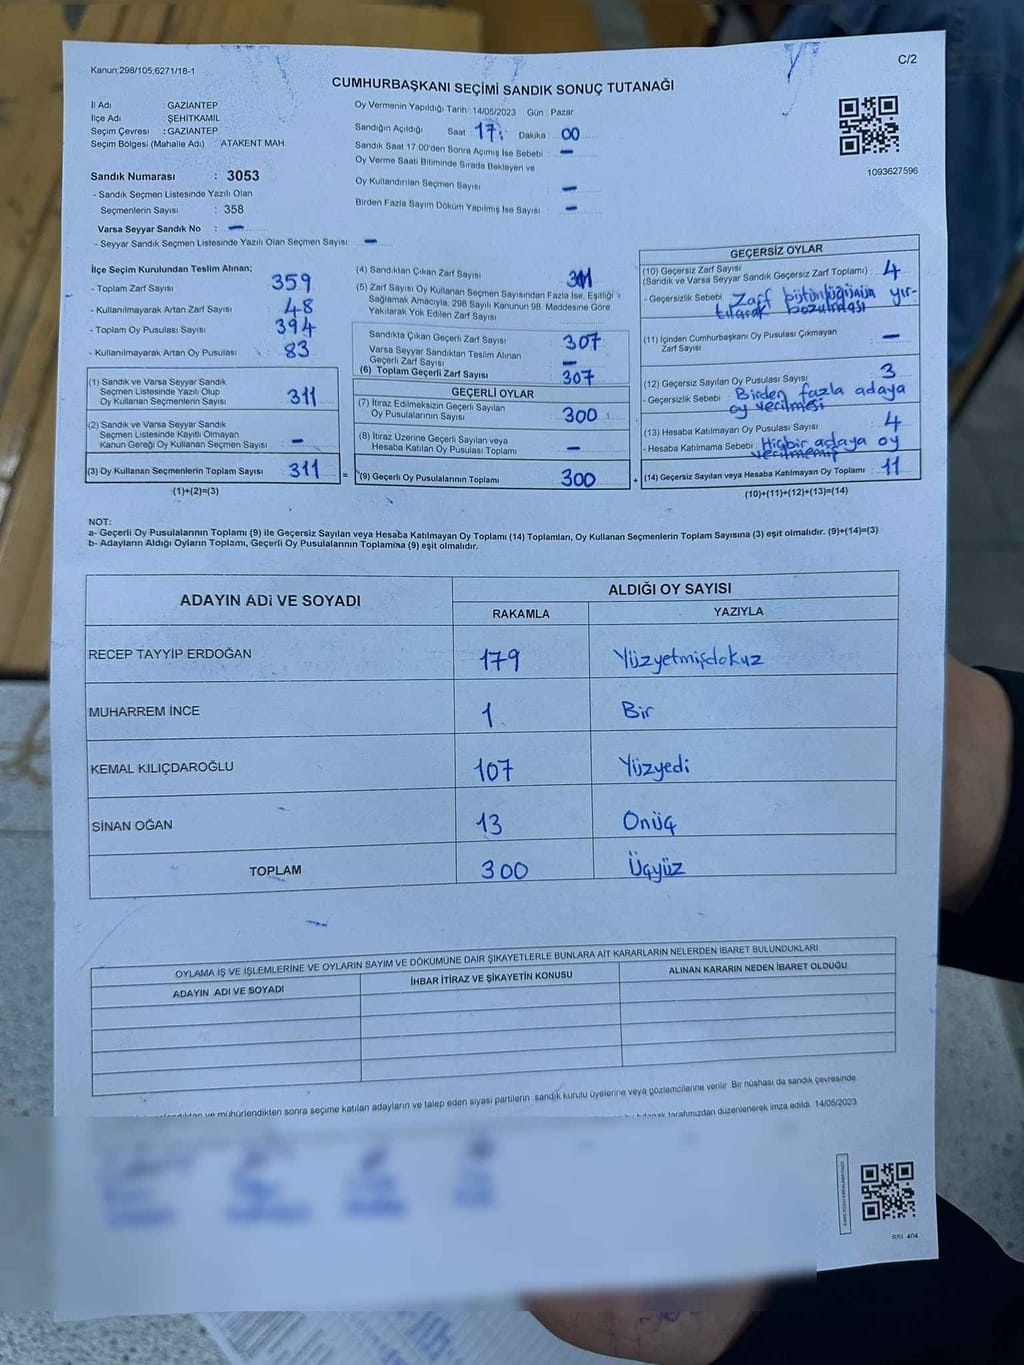 Kanun:298/105;6271/18-1
C/2
CUMHURBAŞKANI SEÇİMİ SANDIK SONUÇ TUTANAĞI
İl Adı : GAZİANTEP
İlçe Adı : ŞEHİTKAMİL
Seçim Çevresi : GAZİANTEP
Seçim Bölgesi (Mahalle Adı) : ATAKENT MAH.
Sandık Numarası : 3053
- Sandık Seçmen Listesinde Yazılı Olan
Seçmenlerin Sayısı : 358
Varsa Seyyar Sandık No : –
- Seyyar Sandık Seçmen Listesinde Yazılı Olan Seçmen Sayısı: –
Oy Vermenin Yapıldığı Tarih :14/05/2023 Gün : Pazar
Sandığın Açıldığı Saat 17: Dakika 00
Sandık Saat 17.00'den Sonra Açımış İse Sebebi –
Oy Verme Saati Bitiminde Sırada Bekleyen ve
Oy Kullandırılan Seçmen Sayısı –
Birden Fazla Sayım Döküm Yapılmış İse Sayısı –
1093627596
İlçe Seçim Kurulundan Teslim Alınan:
- Toplam Zarf Sayısı 359
- Kullanılmayarak Artan Zarf Sayısı 48
- Toplam Oy Pusulası Sayısı 394
- Kullanılmayarak Artan Oy Pusulası 83
(1) Sandık ve Varsa Seyyar Sandık
Seçmen Listesinde Yazılı Olup
Oy Kullanan Seçmenlerin Sayısı 311
(2) Sandık ve Varsa Seyyar Sandık
Seçmen Listesinde Kayıtlı Olmayan
Kanun Gereği Oy Kullanan Seçmen Sayısı –
(3) Oy Kullanan Seçmenlerin Toplam Sayısı 311
(1)+(2)=(3)
(4) Sandıktan Çıkan Zarf Sayısı 311
(5) Zarf Sayısı Oy Kullanan Seçmen Sayısından Fazla İse, Eşitliği
Sağlamak Amacıyla, 298 Sayılı Kanunun 98. Maddesine Göre
Yakılarak Yok Edilen Zarf Sayısı
Sandıkta Çıkan Geçerli Zarf Sayısı 307
Varsa Seyyar Sandıktan Teslim Alınan
Geçerli Zarf Sayısı –
(6) Toplam Geçerli Zarf Sayısı 307
GEÇERLİ OYLAR
(7) İtiraz Edilmeksizin Geçerli Sayılan
Oy Pusulalarının Sayısı 300
(8) İtiraz Üzerine Geçerli Sayılan veya
Hesaba Katılan Oy Pusulası Toplamı –
= (9) Geçerli Oy Pusulalarının Toplamı 300 +
GEÇERSİZ OYLAR
(10) Geçersiz Zarf Sayısı
(Sandık ve Varsa Seyyar Sandık Geçersiz Zarf Toplamı) : 4
- Geçersizlik Sebebi Zarf bütünlüğünün yır-
tılarak bozulması
(11) İçinden Cumhurbaşkanı Oy Pusulası Çıkmayan
Zarf Sayısı –
(12) Geçersiz Sayılan Oy Pusulası Sayısı 3
- Geçersizlik Sebebi Birden fazla adaya
oy verilmesi
(13) Hesaba Katılmayan Oy Pusulası Sayısı 4
- Hesaba Katılmama Sebebi Hiçbir adaya oy
verilmemiş
(14) Geçersiz Sayılan veya Hesaba Katılmayan Oy Toplamı 11
(10)+(11)+(12)+(13)=(14)
NOT:
a- Geçerli Oy Pusulalarının Toplamı (9) ile Geçersiz Sayılan veya Hesaba Katılmayan Oy Toplamı (14) Toplamları, Oy Kullanan Seçmenlerin Toplam Sayısına (3) eşit olmalıdır. (9)+(14)=(3)
b- Adayların Aldığı Oyların Toplamı, Geçerli Oy Pusulalarının Toplamına (9) eşit olmalıdır.
ADAYIN ADI VE SOYADI ALDIĞI OY SAYISI
RAKAMLA YAZIYLA
RECEP TAYYİP ERDOĞAN 179 Yüzyetmişdokuz
MUHARREM İNCE 1 Bir
KEMAL KILIÇDAROĞLU 107 Yüzyedi
SİNAN OĞAN 13 Onüç
TOPLAM 300 Üçyüz
OYLAMA İŞ VE İŞLEMLERİNE VE OYLARIN SAYIM VE DÖKÜMÜNE DAİR ŞİKAYETLERLE BUNLARA AİT KARARLARIN NELERDEN İBARET BULUNDUKLARI
ADAYIN ADI VE SOYADI İHBAR İTİRAZ VE ŞİKAYETİN KONUSU ALINAN KARARIN NEDEN İBARET OLDUĞU
ve mühürlendikten sonra seçime katılan adayların ve talep eden siyasi partilerin sandık kurulu üyelerine veya gözlemcilerine verilir. Bir nüshası da sandık çevresinde
tutanak tarafımızdan düzenlenerek imza edildi. 14/05/2023